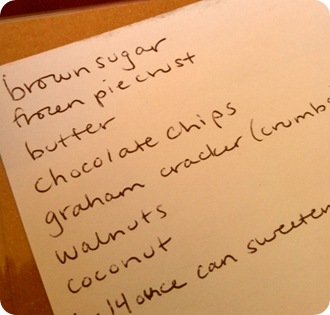 brown sugar
frozen pie crust
butter
chocolate chips
graham cracker (crumbs
walnuts
coconut
14 ounce can sweeten